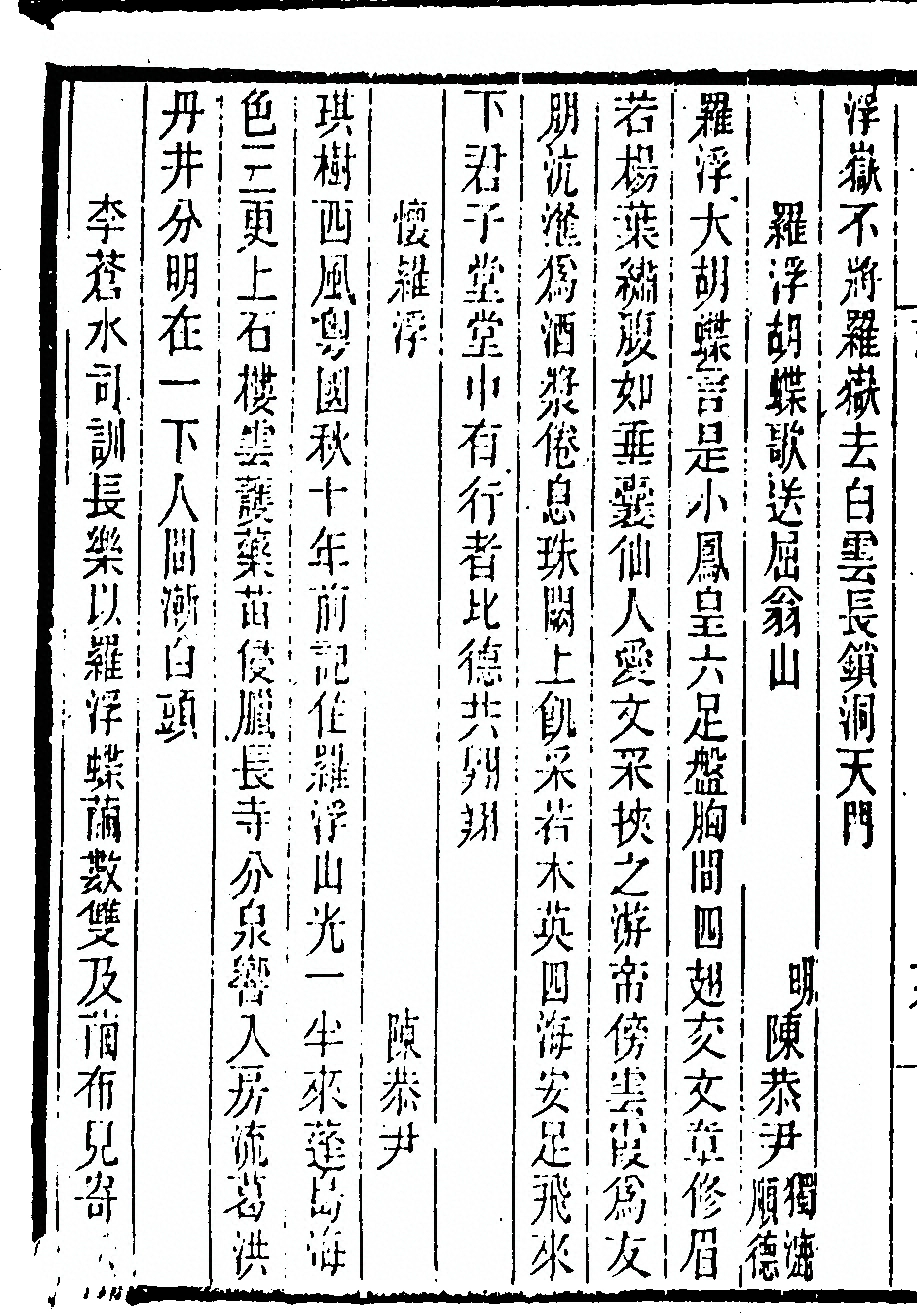 浮嶽不將羅嶽去白雲長鎖洞天門
羅浮胡蝶歌送屈翁山 明陳恭尹獨漉順德
羅浮大胡蝶言是小鳳皇六足盤胸間四翅交文章修眉
若楊葉繡腹如垂囊仙人愛文采挾之游帝傍雲霞爲友
朋沆瀣爲酒漿倦息珠闕上飢采若木英四海安足飛來
下君子堂堂中有行者比德共翱翔
懷羅浮 陳恭尹
琪樹西風粵國秋十年前記住羅浮山光一半來蓬島海
色三更上石樓雲護藥苗侵臘長寺分泉響入房流葛洪
丹井分明在一下人間漸白頭
李蒼水司訓長樂以羅浮蝶繭數雙及繭布見寄